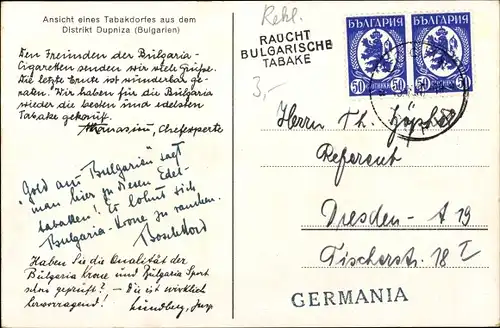 Ansicht eines Tabakdorfes aus dem
Distrikt Dupniza (Bulgarien)
Den Freunden der Bulgaria-
Cigaretten senden wir viele Grüsse.
Die letzte Ernte ist wunderbar ge-
raten. Wir haben für die Bulgaria
wieder die besten und edelsten
Tabake gekauft.
Athanasiu, Chefexperte
"Gold aus Bulgarien" sagt
man hier zu diesen Edel-
tabaken! Es lohnt sich
Bulgaria-Krone zu rauchen.
Haben Sie die Qualität der
Bulgaria Krone und Bulgaria Sport
schon geprüft? – Die ist wirklich
hervorragend!
Rekl.
RAUCHT
BULGARISCHE
TABAKE
3,-
БЪЛГАРИЯ
50 СТОТИНКИ
БЪЛГАРИЯ
50 СТОТИНКИ
Herrn Th.
Referent
Dresden - A 19
Tischerstr. 18 I
GERMANIA